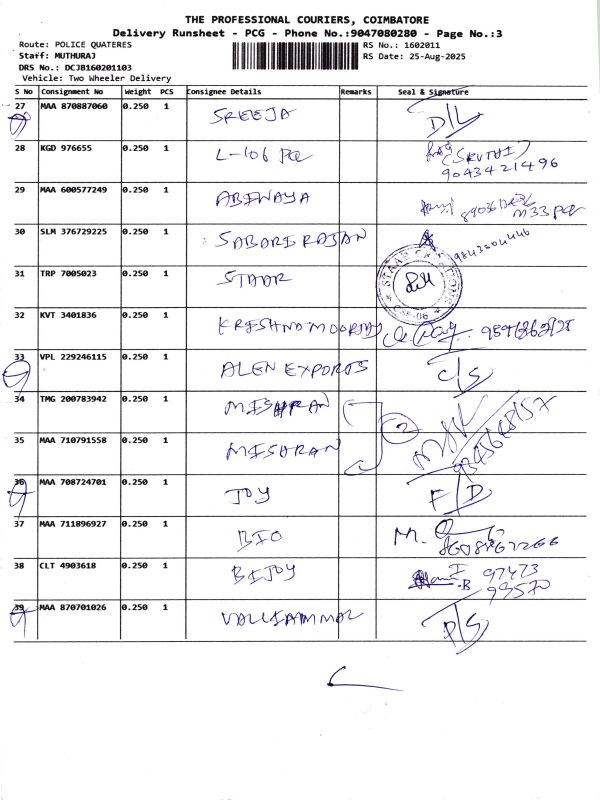 THE PROFESSIONAL COURIERS, COIMBATORE
Delivery Runsheet - PCG - Phone No.:9047080280 - Page No.:3
Route: POLICE QUATERES
RS No.: 1602011
Staff: MUTHURAJ
RS Date: 25-Aug-2025
DRS No.: DCJB160201103
Vehicle: Two Wheeler Delivery
S No Consignment No Weight PCS Consignee Details Remarks Seal & Signature
27 MAA 870887060 0.250 1 SREEJA D/L
28 KGD 976655 0.250 1 L-106 (SRUTHI)
9043421496
29 MAA 600577249 0.250 1 ABINAYA
M33
30 SLM 376729225 0.250 1 SABARI RAJAN
31 TRP 7005023 0.250 1 STAAR
32 KVT 3401836 0.250 1
33 VPL 229246115 0.250 1 ALEN EXPORTS C/S
34 TMG 200783942 0.250 1 2
35 MAA 710791558 0.250 1
36 MAA 708724701 0.250 1 JOY F/D
37 MAA 711896927 0.250 1 BIO M.
38 CLT 4903618 0.250 1 BIJOY 97473
93570
39 MAA 870701026 0.250 1 VALLIAMMAL P/S